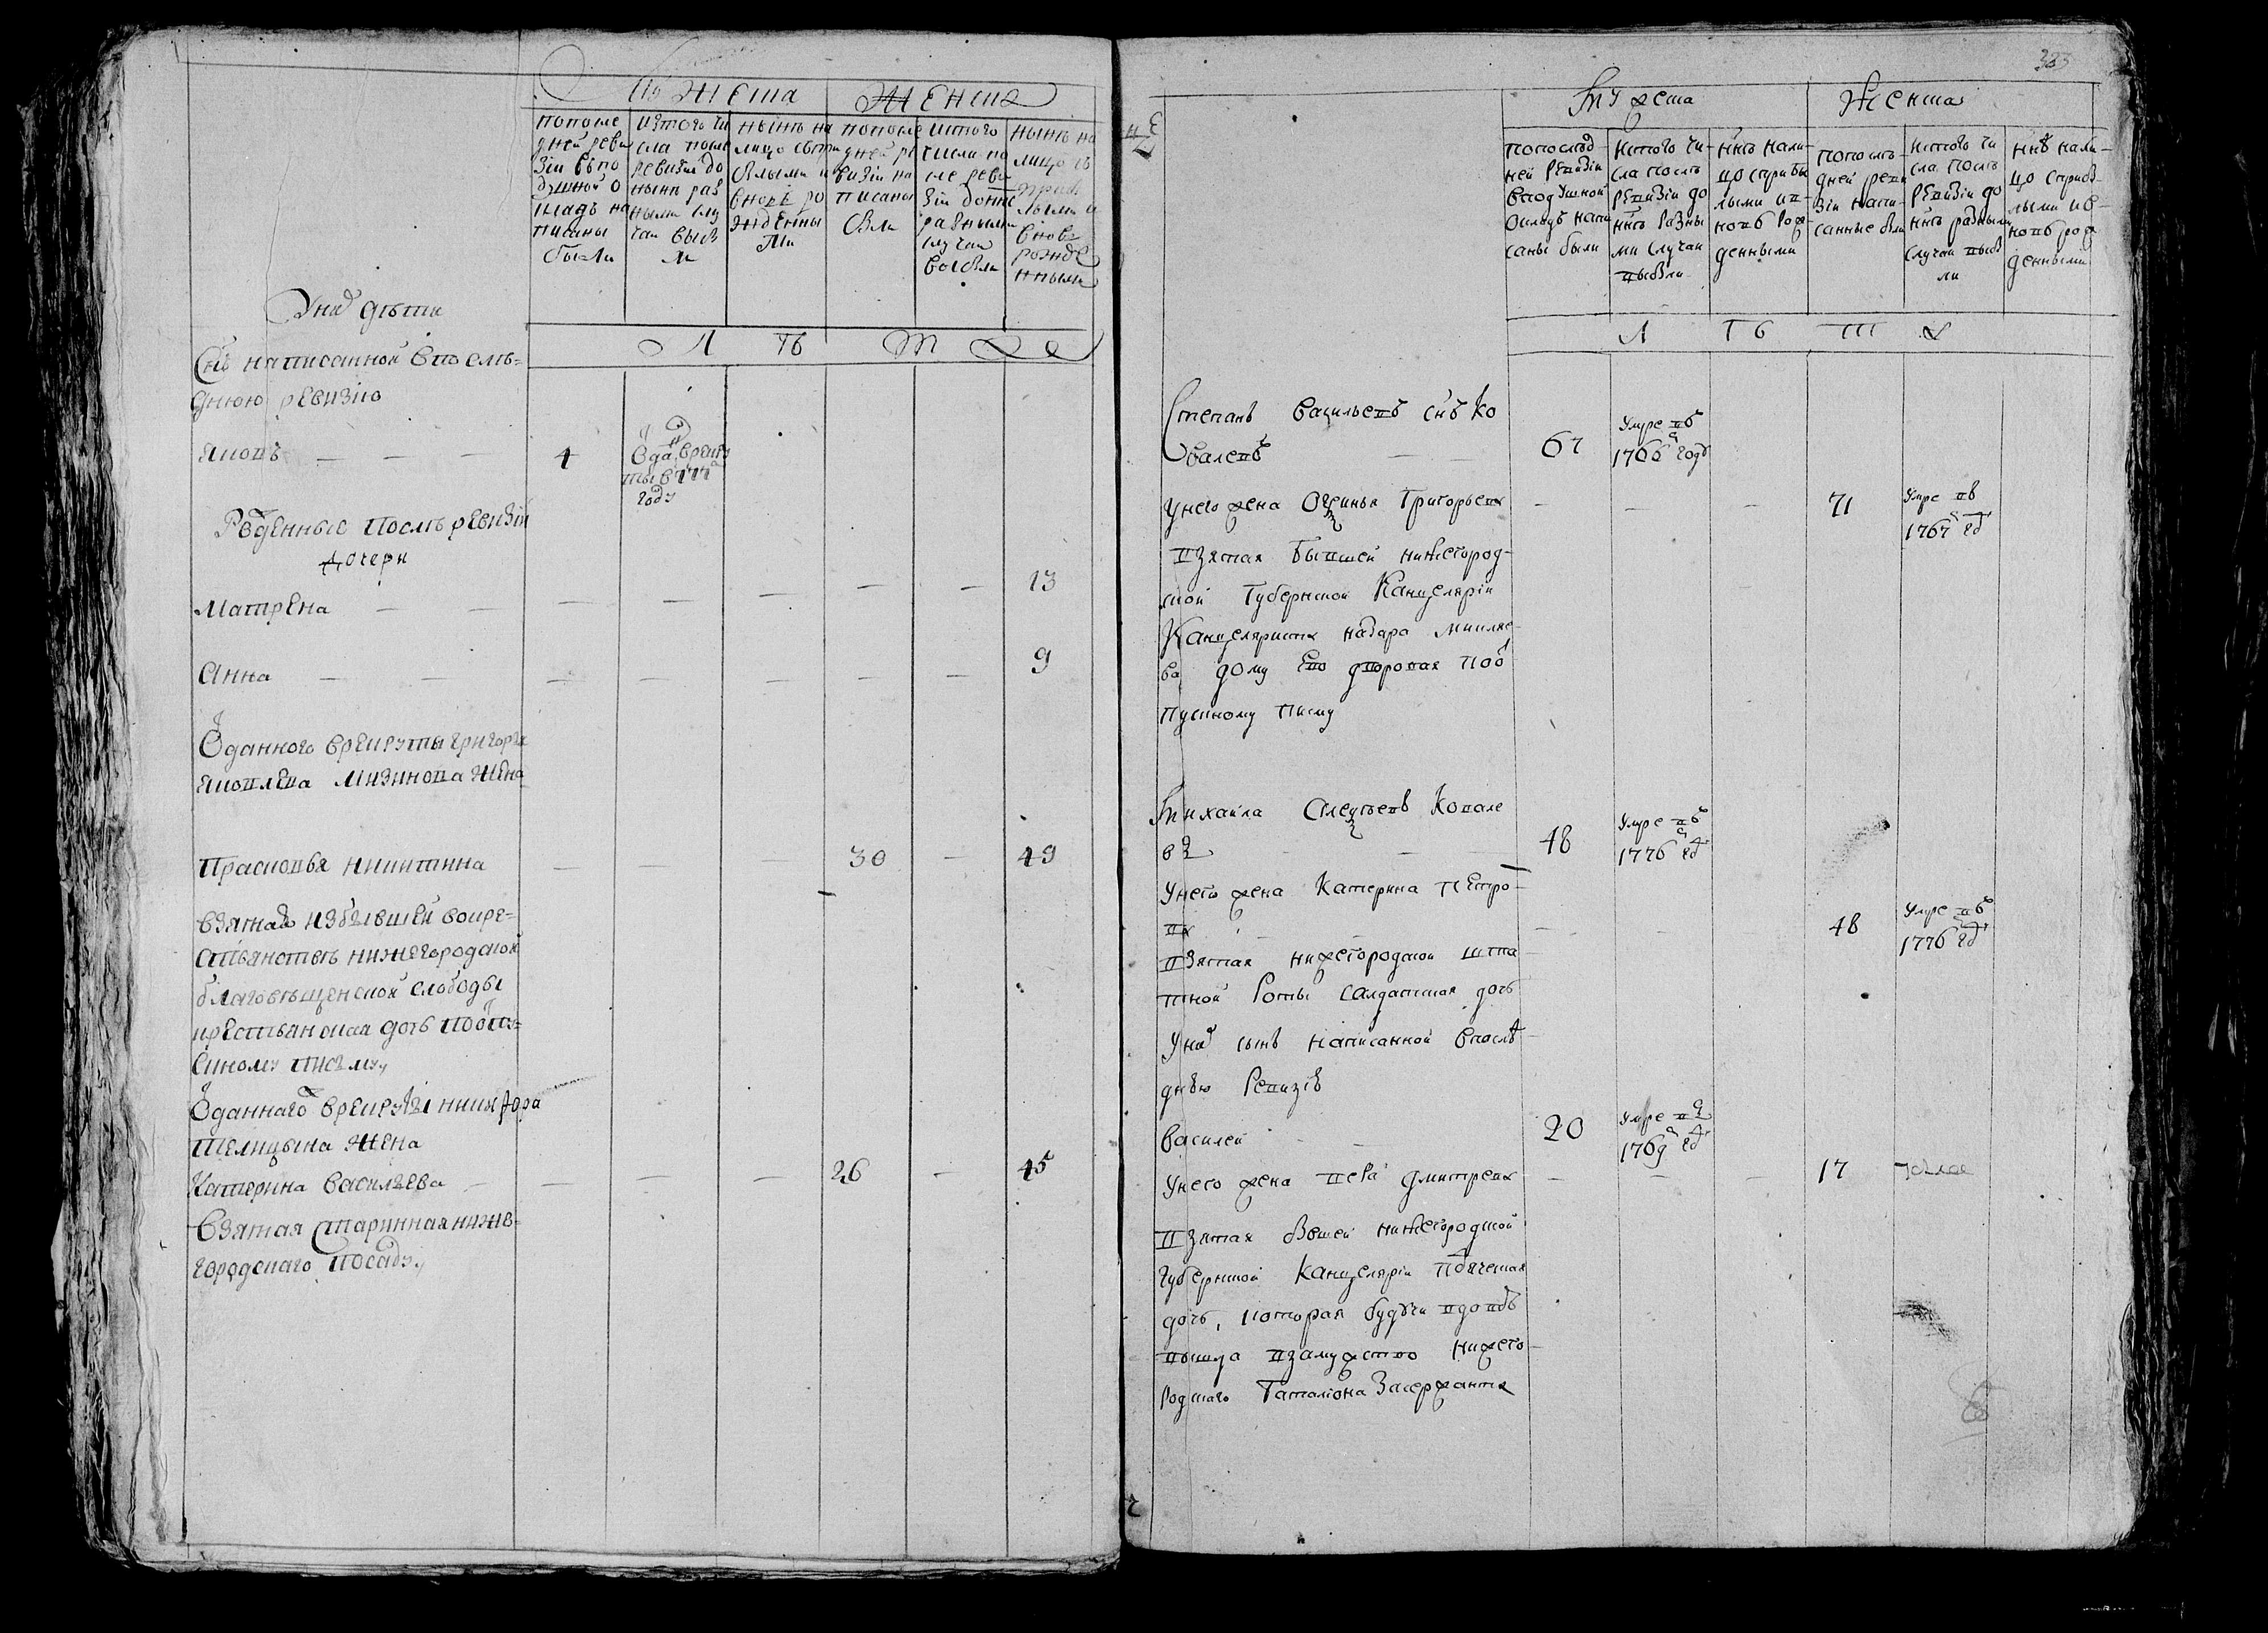 Мужеска Женска
попосле
дней реви
зіи вспо
душной о
кладъ на
писаны
были
изтого чи
сла после
ревизіи до
нынѣ раз
ными слу
чаи выбы
ли
нынѣ на
лицо спри
былыми и
вновь ро
жденны
ми
попосле
дней ре
визіи на
писаны
были
истого
числа по
сле реви
зіи донне
разными
случаи
выбыли
нынѣ на
лицо съ
прибы
лыми и
вновь
рожде
нными
Л Ѣ Т А
Унихъ дѣти
Снъ написанной впослѣ-
днюю ревизію
Яковъ — — — 4
Одан врекру
ты в 1777
году
Рожденные послѣ ревизіи
дочери
Матрена — — — — — — — 13
Анна — — — — — — — 9
Оданного врекруты григорья
яковлева мизинова жена
Прасковья никитина — — — 30 — 49
взятая избывшей вокре-
стьянствѣ нижегородской
благовѣщенской слободы
крестьянская дочь поотпу-
скному писму
Оданнаго врекруты никифора
Шелицына жена
Катерина васильева — — — — 26 — 45
взятая старинная ниже-
городскаго посаду
Мужеска Женска
попослѣд
ней ревизіи
вподушной
окладъ напи
саны были
истого чи-
сла послѣ
ревизіи до
ннѣ разны
ми случаи
выбыли
ннѣ нали-
цо сприбы
лыми ив-
новь рож
денными
попослѣ-
дней реви
зіи напи-
санные были
истого чи
сла послѣ
ревизіи до
ннѣ разными
случаи выбы
ли
ннѣ нали-
цо сприбы-
лыми ив-
новь рож
денными
Л Ѣ Т А
Степанъ васильевъ снъ Ко
валевъ — — 67
Умре въ
1766 годъ
Унего жена Огафья Григорьева — — — 71
Умре въ
1767 гд
взятая бывшей нижегород-
ской губернской Канцеляріи
Канцеляриста назара
ва дому его дворовая поо
пускному писму
Михайла Алексѣевъ Ковале
въ — — 48
Умре въ
1776 гд
Унего жена Катерина Петро-
ва — — — — 48
Умре въ
1776 гд
взятая нижегородской шта
тной Роты салдатская дочь
Унихъ сынъ написанной впослѣ
днью Ревизію
василей — — 20
Умре въ
1769 гд
Унего жена дмитрева — — — 17
взятая бывшей нижегородской
губернской Канцеляріи подяческая
дочь, которая будучи вдовою
вышла взамужство нижего
родскаго баталіона Засержанта